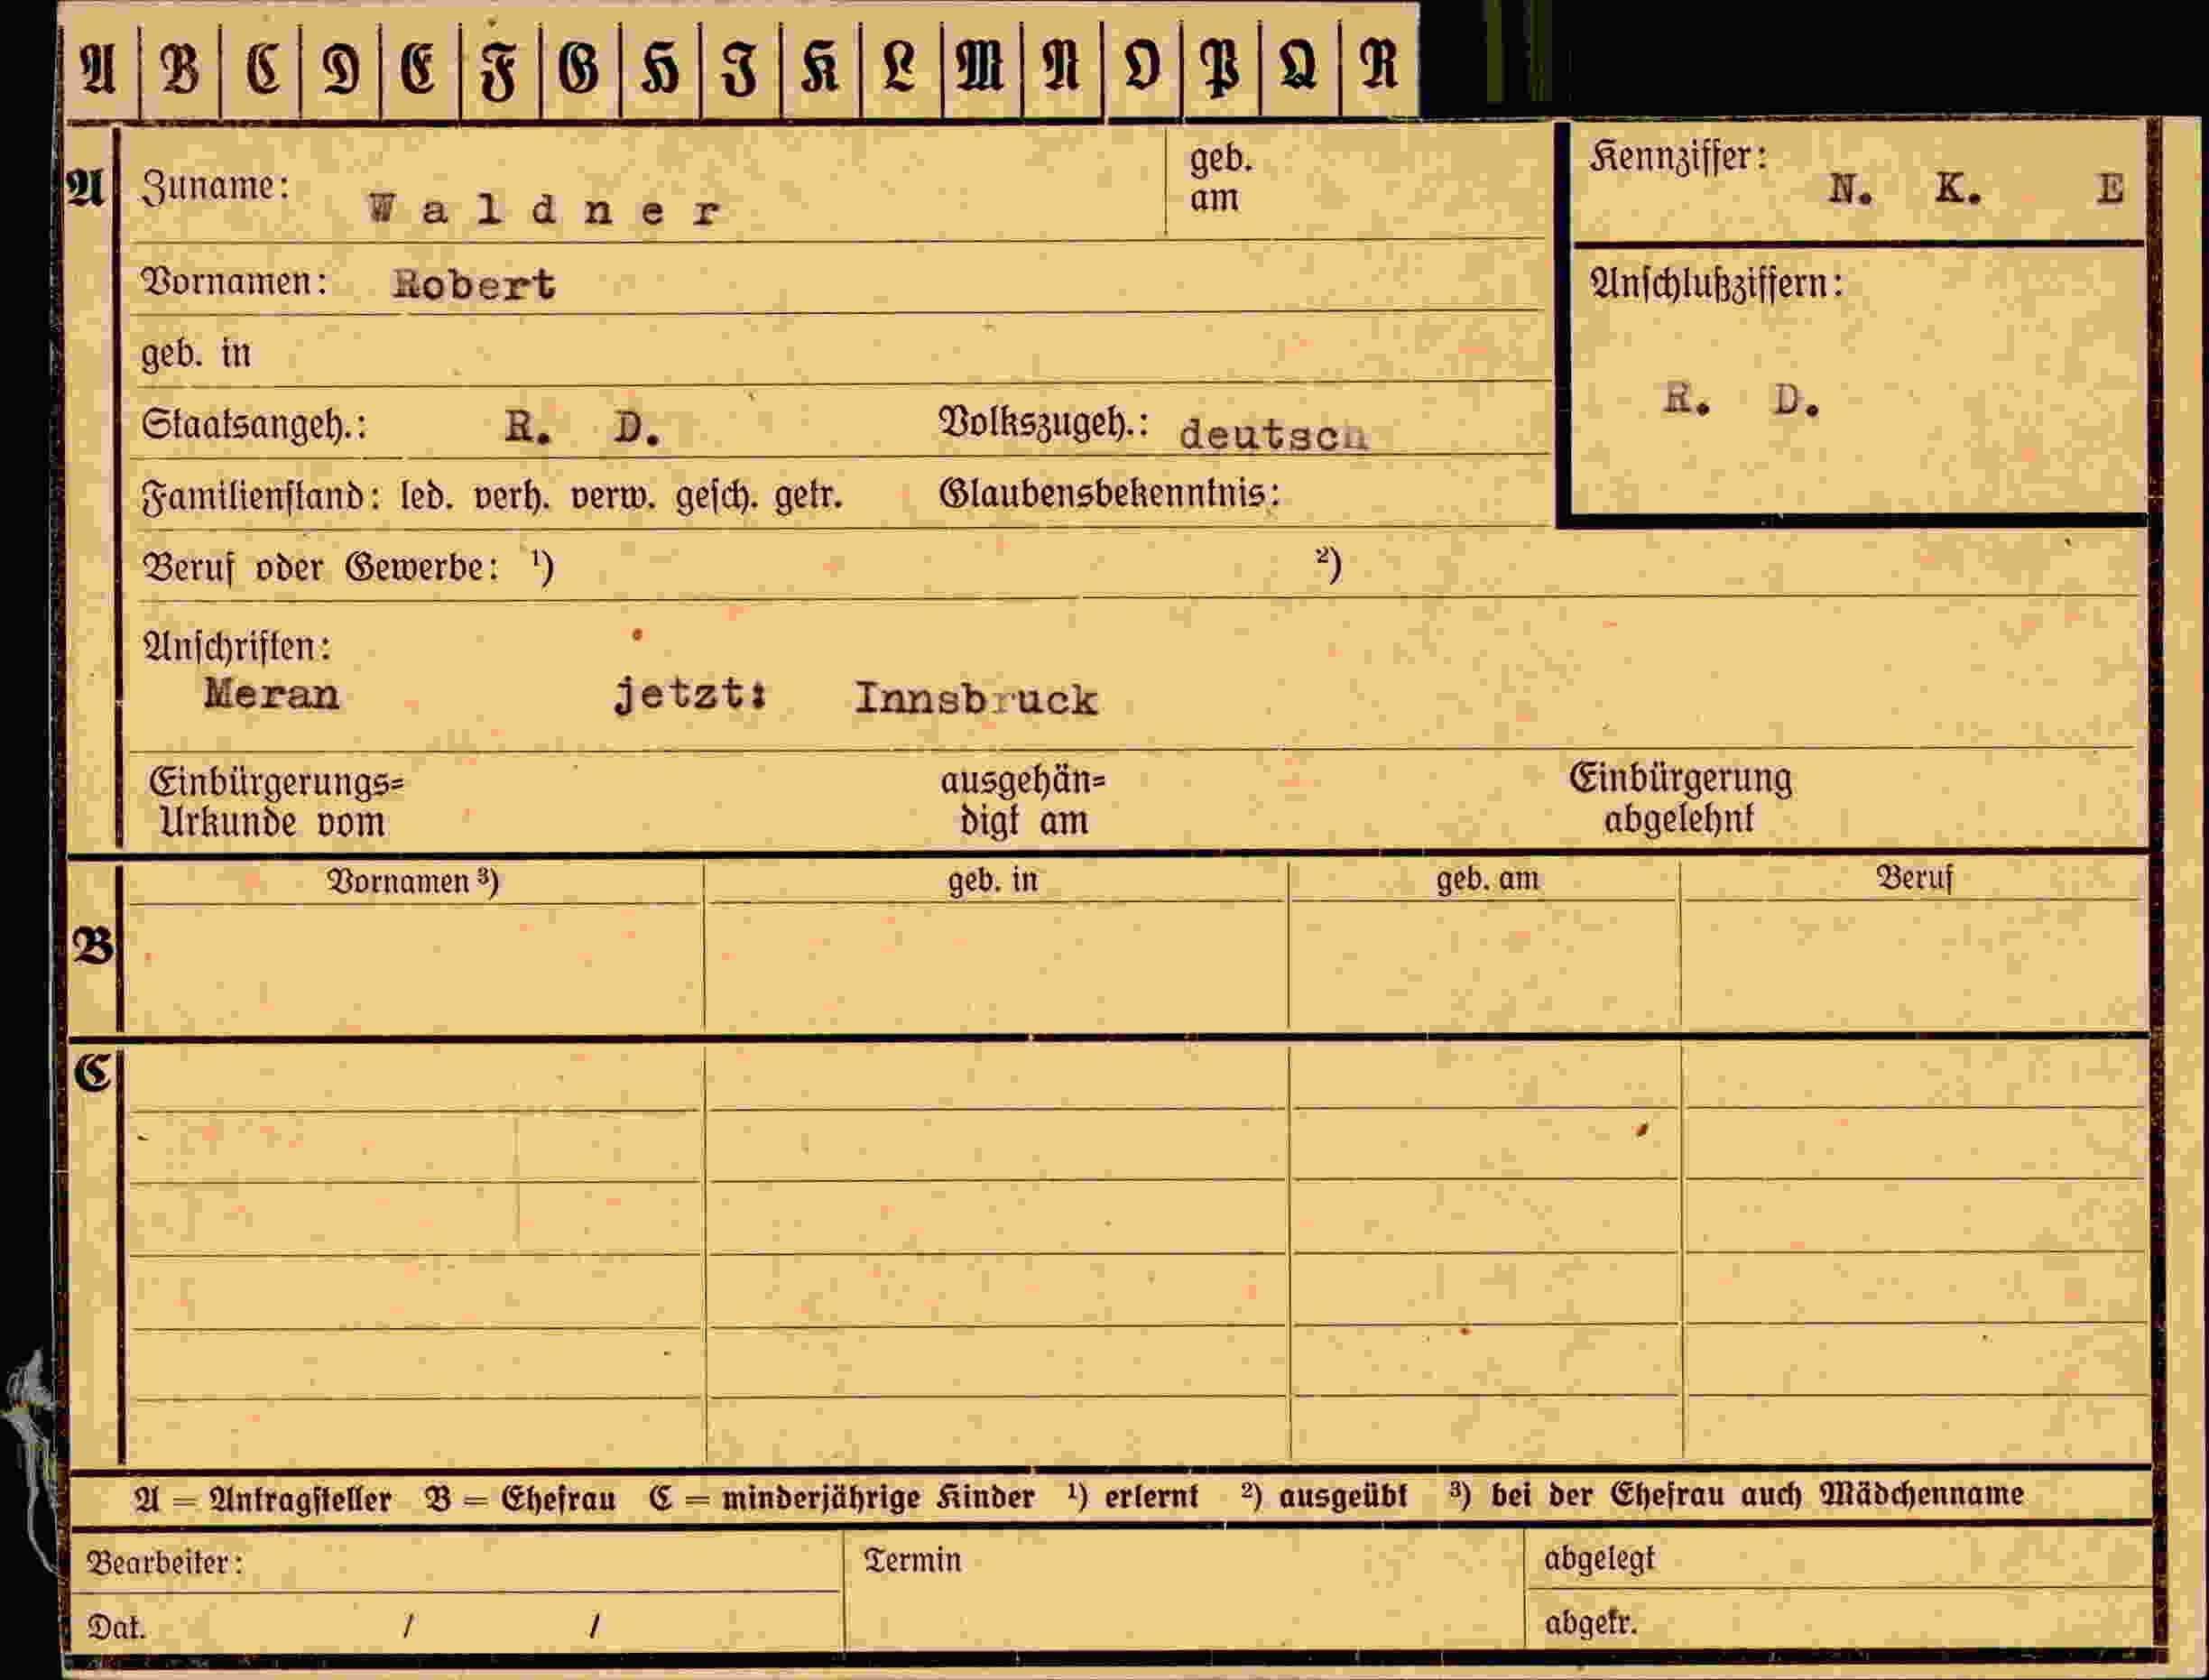 A B C D E F G H I K L M N O P Q R
A Zuname: Waldner geb. am
Kennziffer: N. K. E
Vornamen: Robert
Anschlußziffern:
R. D.
geb. in
Staatsangeh.: R. D. Volkszugeh.: deutsch
Familienstand: led. verh. verw. gesch. getr. Glaubensbekenntnis:
Beruf oder Gewerbe: ¹) ²)
Anschriften:
Meran jetzt: Innsbruck
Einbürgerungs= ausgehän= Einbürgerung
Urkunde vom digt am abgelehnt
Vornamen ³) geb. in geb. am Beruf
B
C
A = Antragsteller B = Ehefrau C = minderjährige Kinder ¹) erlernt ²) ausgeübt ³) bei der Ehefrau auch Mädchenname
Bearbeiter: Termin abgelegt
Dat. / / abgetr.